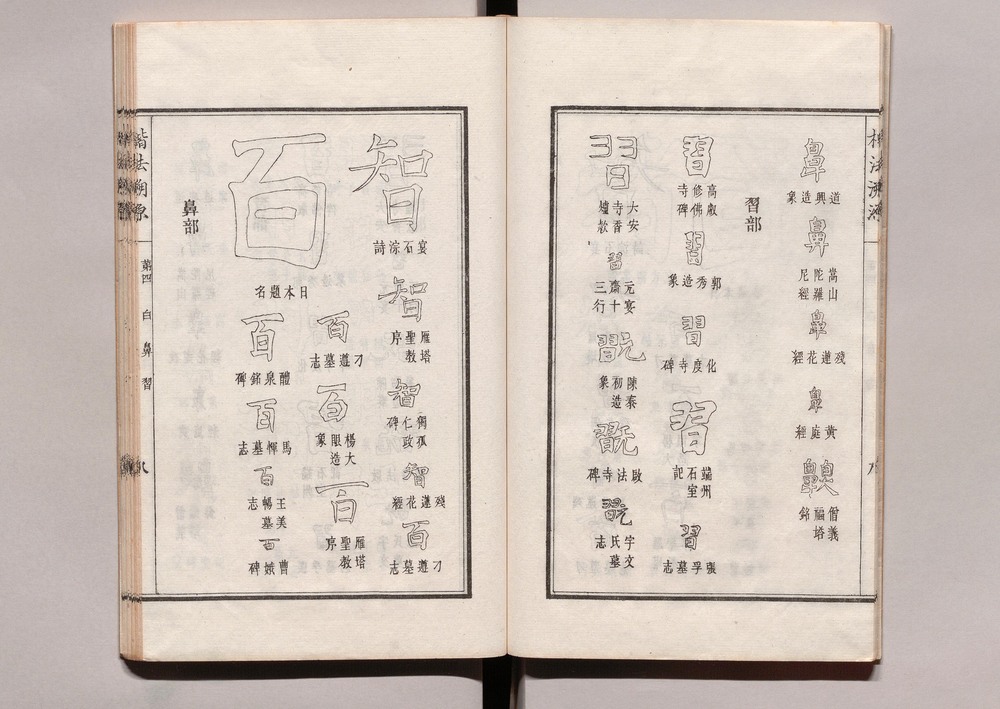 楷法溯源
鼻
道興造象
鼻
嵩山陀羅尼經
鼻
殘蓮花經
鼻
黃庭經
齅
習部
習
高叡修佛寺碑
習
郭秀造象
習
化度寺碑
習
端州石室記
習
張孚墓志
習
大安寺香爐款
習
元宴齋三十行
翫
陳泰初造象
翫
啟法寺碑
翫
宇文氏墓志
智
宴石淙詩
智
雁塔聖教序
智
獨孤仁政碑
智
殘蓮花經
百
刁遵墓志
百
日本題名
百
刁遵墓志
百
楊大眼造象
百
雁塔聖教序
百
醴泉銘碑
百
馬惲墓志
百
王美暢墓志
百
曹娥碑
鼻部
楷法溯源
第四 白 鼻 習
八